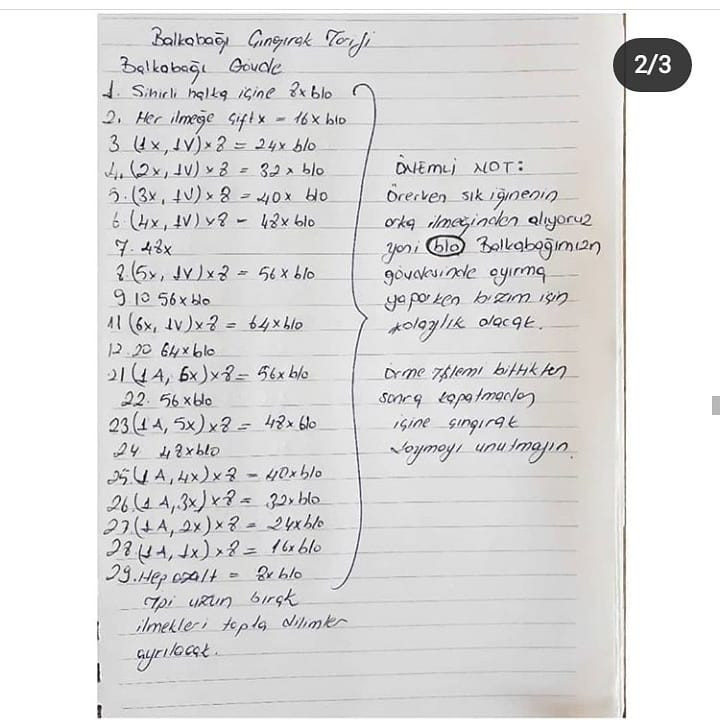 2/3
Balkabağı Çıngırak Tarifi
Balkabağı Gövde
1. Sihirli halka içine 8x blo
2. Her ilmeğe çift x = 16 x blo
3 (1x, 1V) x 8 = 24x blo
4. (2x, 1V) x 8 = 32x blo
5. (3x, 1V) x 8 = 40x blo
6 (4x, 1V) x 8 = 48x blo
7. 48x
8. (5x, 1V) x 8 = 56x blo
9 10 56x blo
11 (6x, 1V) x 8 = 64x blo
12. 20 64x blo
21 (1A, 6x) x 8 = 56x blo
22. 56x blo
23 (1A, 5x) x 8 = 48x blo
24 48x blo
25. (1A, 4x) x 8 = 40x blo
26. (1A, 3x) x 8 = 32x blo
27. (1A, 2x) x 8 = 24x blo
28. (1A, 1x) x 8 = 16x blo
29. Hep azalt = 8x blo
İpi uzun bırak
ilmekleri topla dilimler
ayrılacak.
ÖNEMLİ NOT:
Örerken sık iğnenin
arka ilmeğinden alıyoruz
yani blo Balkabağımızın
gövdesinde ayırma
yaparken bizim için
kolaylık olacak.
Örme işlemi bittikten
sonra kapatmadan
içine çıngırak
koymayı unutmayın.